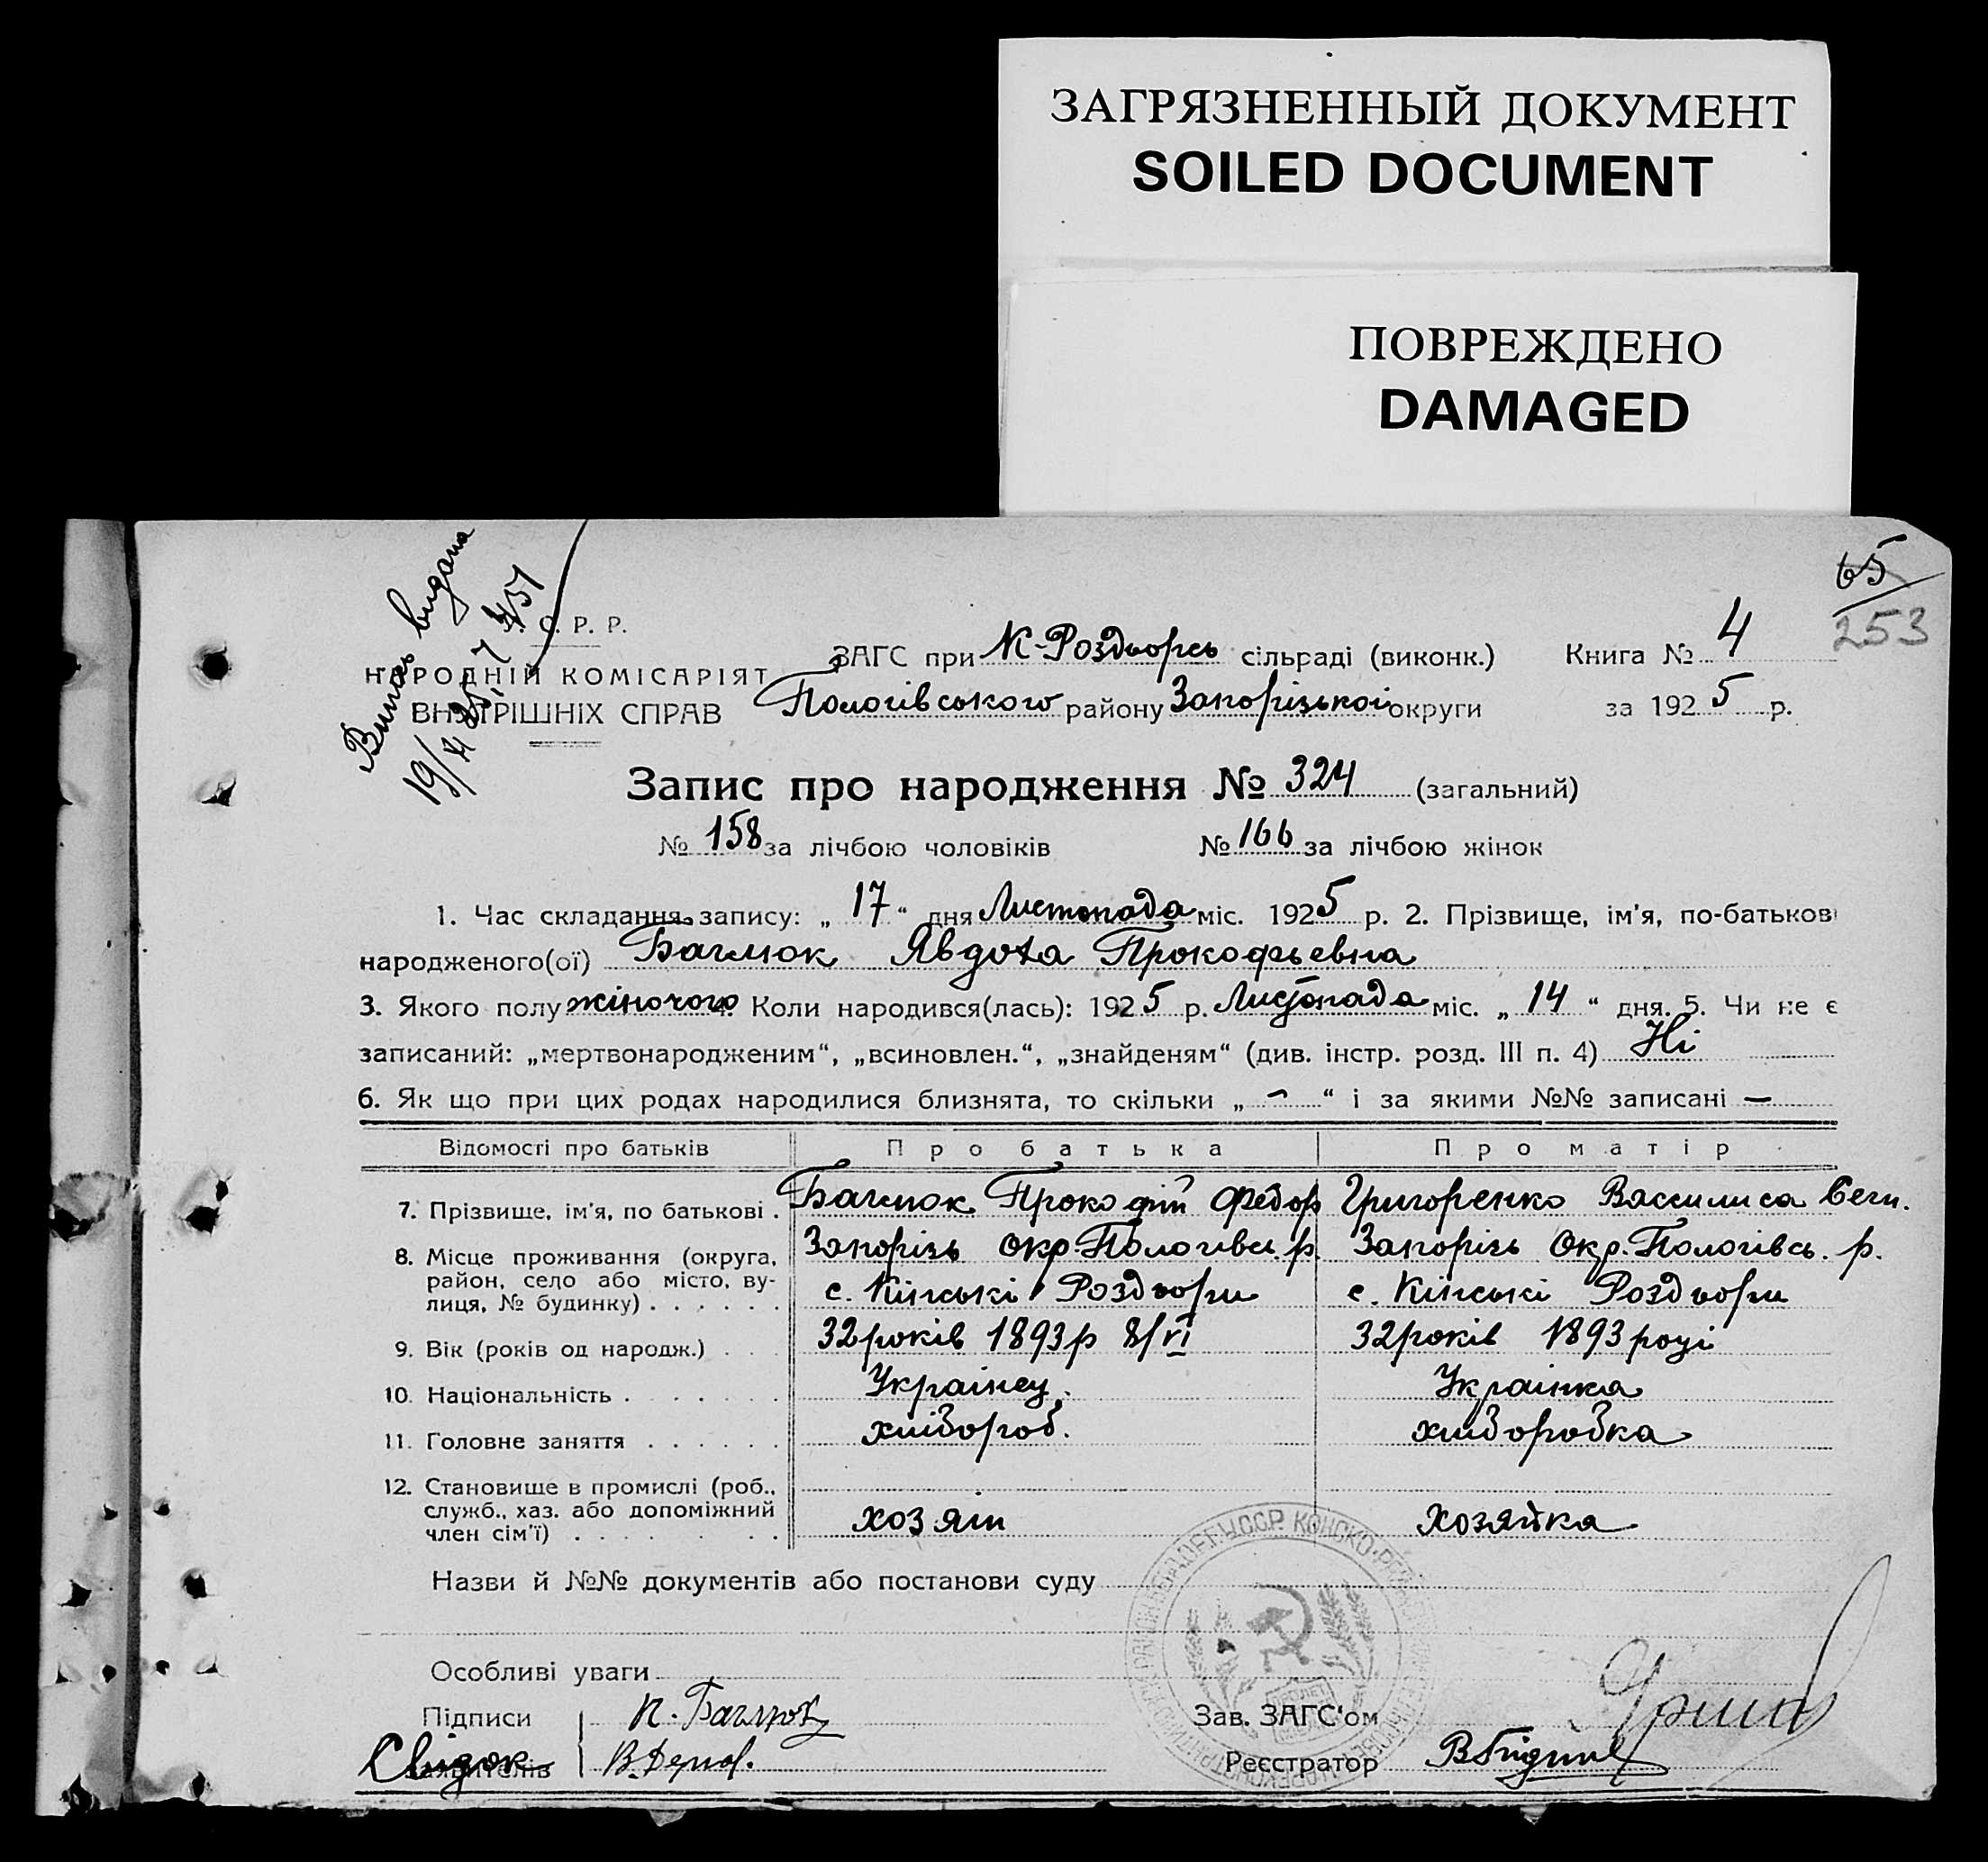 ЗАГРЯЗНЕННЫЙ ДОКУМЕНТ
SOILED DOCUMENT
ПОВРЕЖДЕНО
DAMAGED
65
253
Випись видана
С. Р. Р.
НАРОДНІЙ КОМІСАРІЯТ
ВНУТРІШНІХ СПРАВ
ЗАГС при К-Роздорсь сільраді (виконк.) Книга № 4
Пологівського району Запорізької округи за 1925 р.
Запис про народження № 324 (загальний)
№ 158 за лічбою чоловіків № 166 за лічбою жінок
1. Час складання запису: „ 17 “ дня Листопада міс. 1925 р. 2. Прізвище, ім'я, по-батькові
народженого(ої) Баглюк Явдоха Прокофьевна
3. Якого полу жіночого 4. Коли народився(лась): 1925 р. Листопада міс. „ 14 “ дня. 5. Чи не є
записаний: „мертвонародженим“, „всиновлен.“, „знайденям“ (див. інстр. розд. III п. 4) Ні
6. Як що при цих родах народилися близнята, то скільки „ – “ і за якими №№ записані —
Відомості про батьків Про батька Про матір
7. Прізвище, ім'я, по батькові . Баглюк Прокофій Федор Григоренко Вассилиса
8. Місце проживання (округа, Запорізь Окр. Пологівсь. р. Запорізь Окр. Пологівсь. р.
район, село або місто, ву-
лиця, № будинку) . . . . . . с. Кінські Роздори с. Кінські Роздори
9. Вік (років од народж.) . . . 32 років 1893 р 8/VI 32 років 1893 році
10. Національність . . . . . . Українец. Українка
11. Головне заняття . . . . . . хлібороб. хліборобка
12. Становище в промислі (роб.,
служб., хаз. або допоміжний хозяін хозяйка
член сім'ї) . . . . . .
Назви й №№ документів або постанови суду
Особливі уваги
Підписи П. Баглюк Зав. ЗАГС'ом
Свідок заявителів Реєстратор